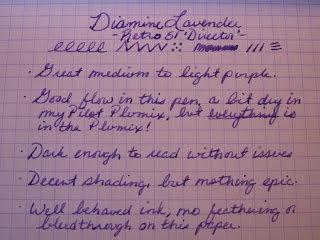 Diamine Lavender
-Retro 51 'Director'-
· Great medium to light purple.
· Good flow in this pen, a bit dry in
my Pilot Plumix, but everything is
in the Plumix!
· Dark enough to read without issues
· Decent shading, but nothing epic.
· Well behaved ink, no feathering or
bleedthrough on this paper.